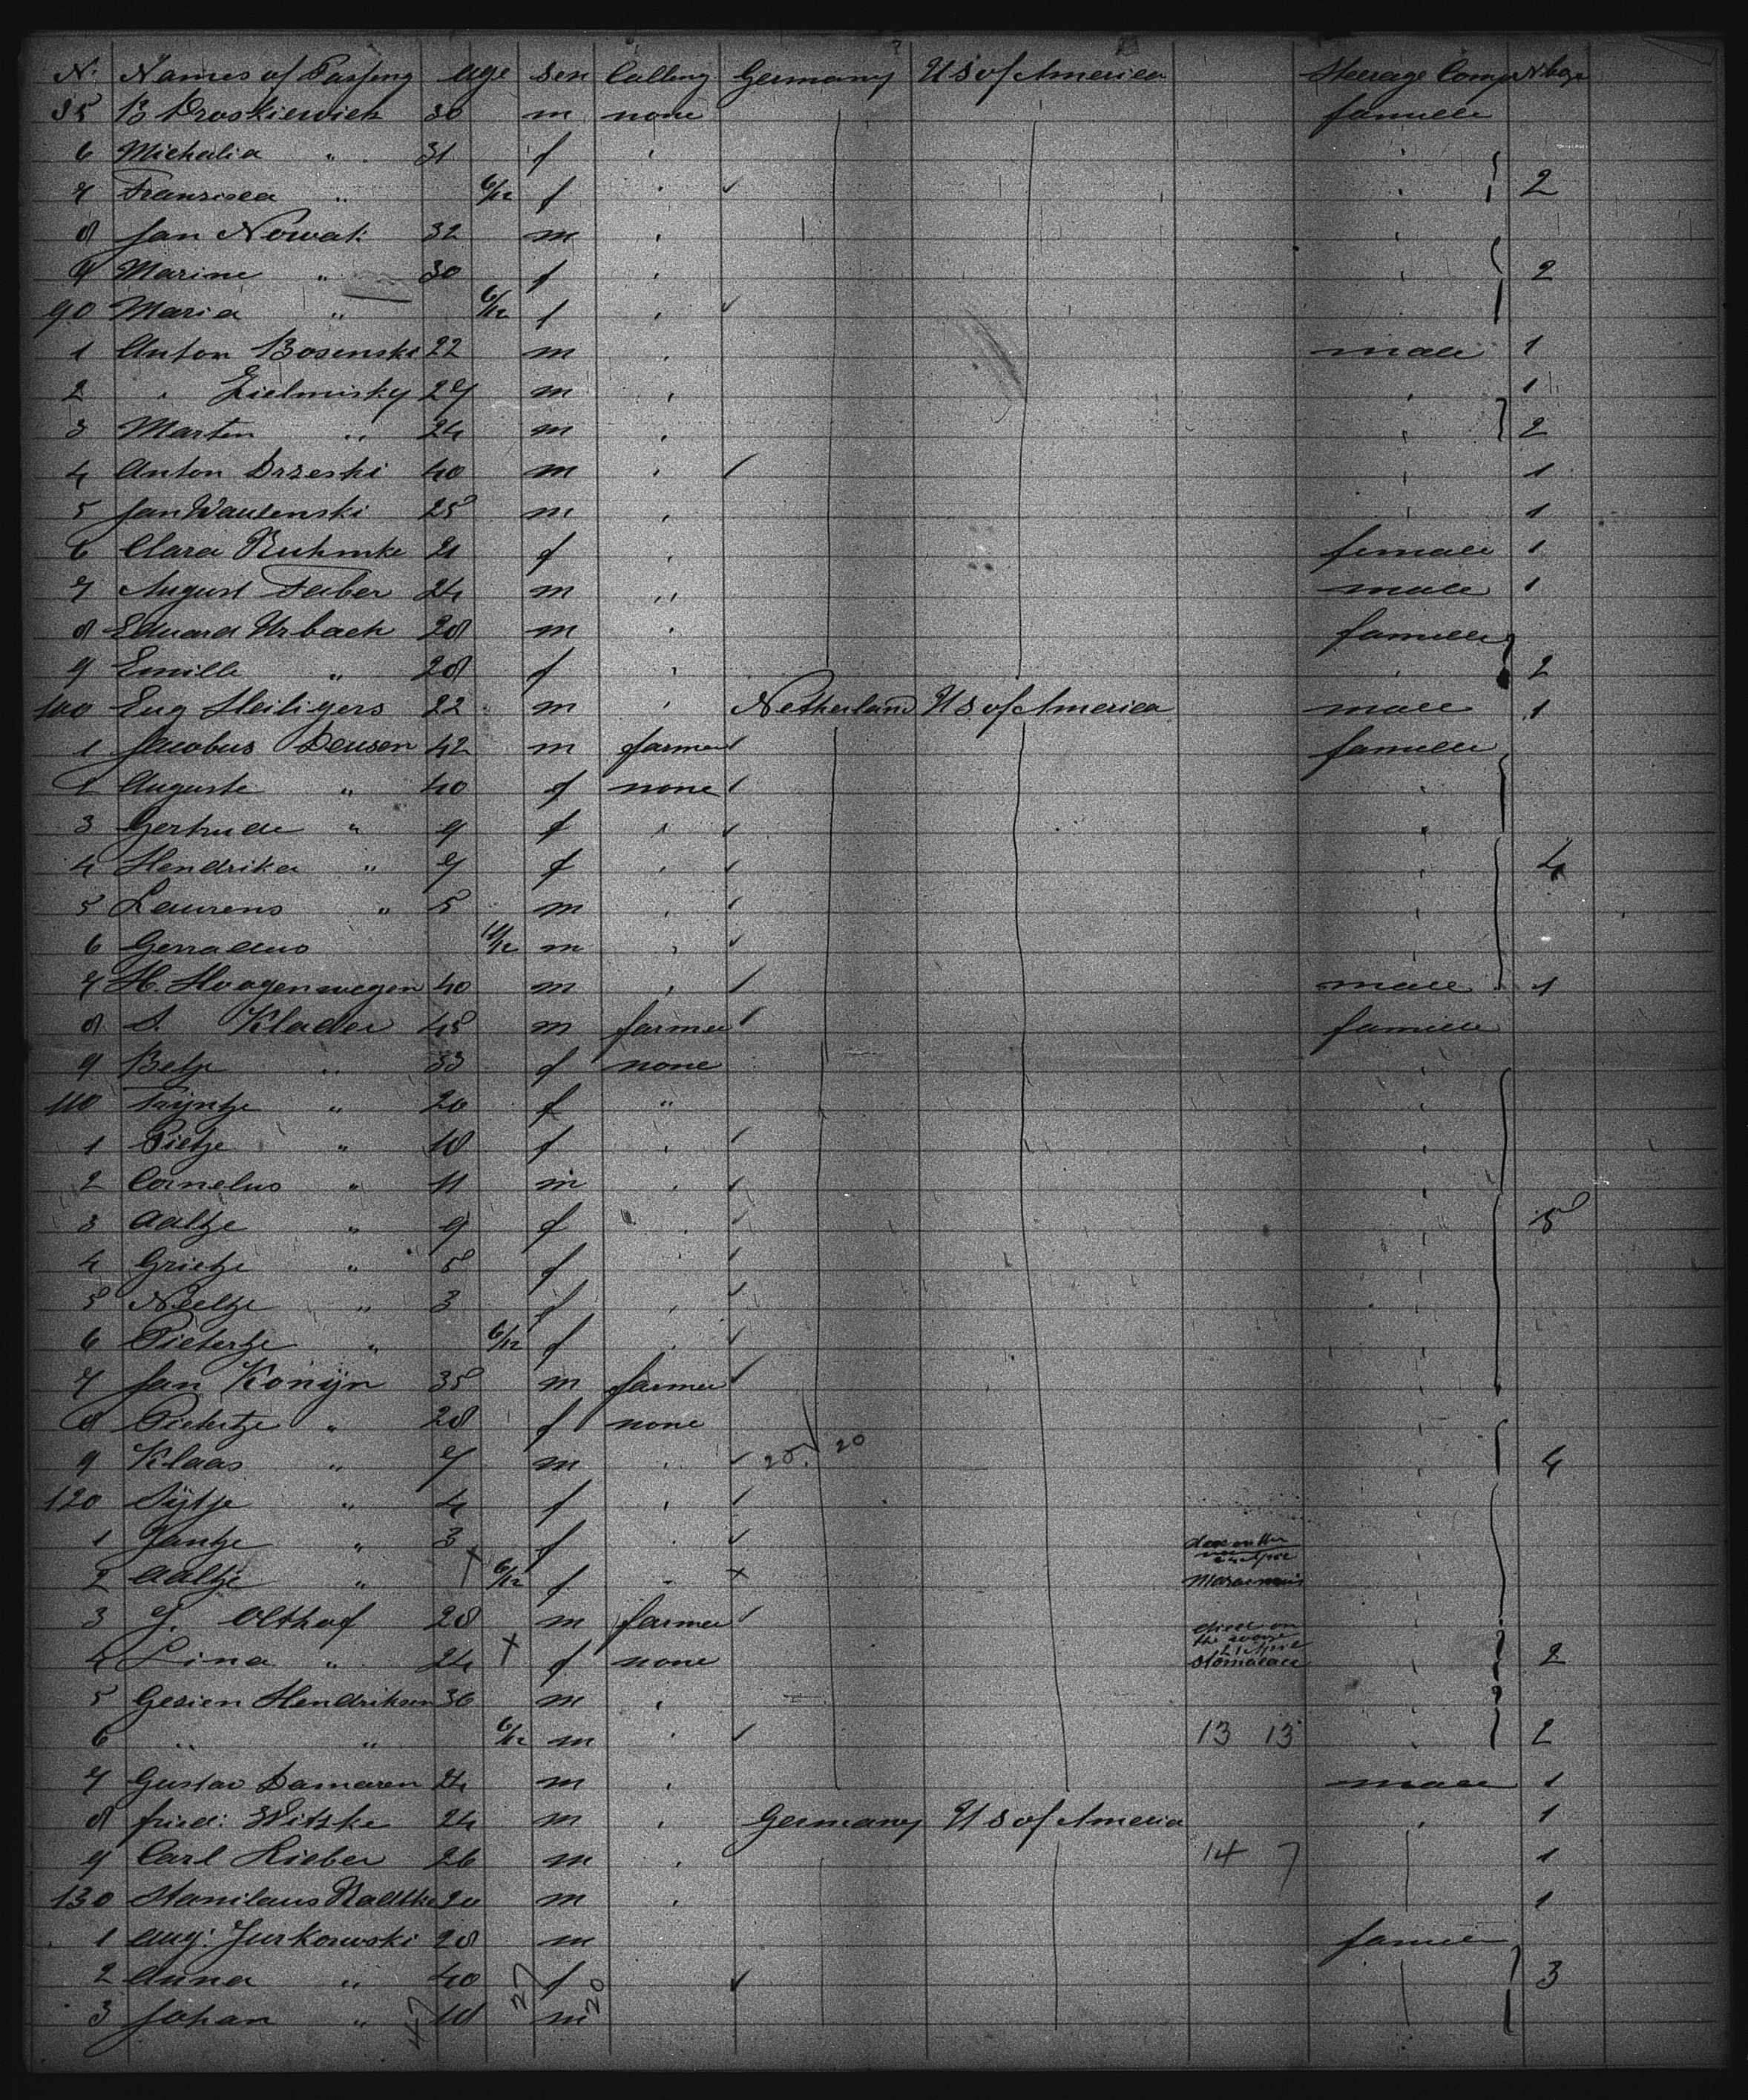 No. Names of Passeng age sex Calling Germany US of America Steerage Comp N bage
85 B Droskiewich 30 m none famille
6 Michalia " 31 f '
7 Fransisca " 6/12 f ' ✓ 2
8 Jan Nowak 32 m '
9 Marine " 30 f ' 2
90 Maria " 6/12 f ' ✓
1 Anton Bosenski 22 m ' male 1
2 " Zielminsky 27 m ' 1
3 Marten " 24 m ' 2
4 Anton Drzeski 40 m ' ✓ 1
5 Jan Wausenski 25 m ' 1
6 Clara Ruhmke 21 f ' female 1
7 August Faber 24 m " male 1
8 Eduard Urbach 28 m ' famille
9 Emille " 28 f ' 2
100 Eug Heiligers 22 m ' Netherland US of America male 1
1 Jacobus Deusen 42 m farmer ✓ famille
2 Auguste " 40 f none ✓
3 Gertrude " 9 f ' ✓
4 Hendrika " 7 f ' ✓ 4
5 Laurens " 5 m ' ✓
6 Gerradus 11/12 m ' ✓
7 H. Hoogenwegen 40 m ' ✓ male 1
8 S. Klader 45 m farmer ✓ famille
9 Betje " 33 f none
110 Trijntje " 20 f "
1 Pietje " 10 f ' ✓
2 Cornelus " 11 m ' ✓
3 Aaltje " 9 f ' ✓ 5
4 Grietje " 5 f ' ✓
5 Neeltje " 3 f ' ✓
6 Pietertje " 6/12 f ' ✓
7 Jan Konijn 35 m farmer ✓
8 Pietertje " 28 f none
9 Klaas " 7 m ' ✓ 20 4
120 Sijtje " 4 f ' ✓
1 Jantje " 3 f ' ✓
2 Aaltje " 6/12 f x
3 J. Olthof 28 m farmer ✓ died on
4 Lina " 24 x f none the voyage 21 April 2
5 Gesien Hendriksen 36 m '
6 " " 6/12 m ' ✓ 13 13 2
7 Gustav Damaren 24 m ' male 1
8 fried: Witzke 24 m ' Germany US of America 1
9 Carl Rieber 26 m ' 14 7 1
130 Stanilaus Radtke 20 m ' 1
1 Aug: Jurkowski 28 m famille
2 Anna " 40 f ✓ 3
3 Johan " 10 m
47 27 20